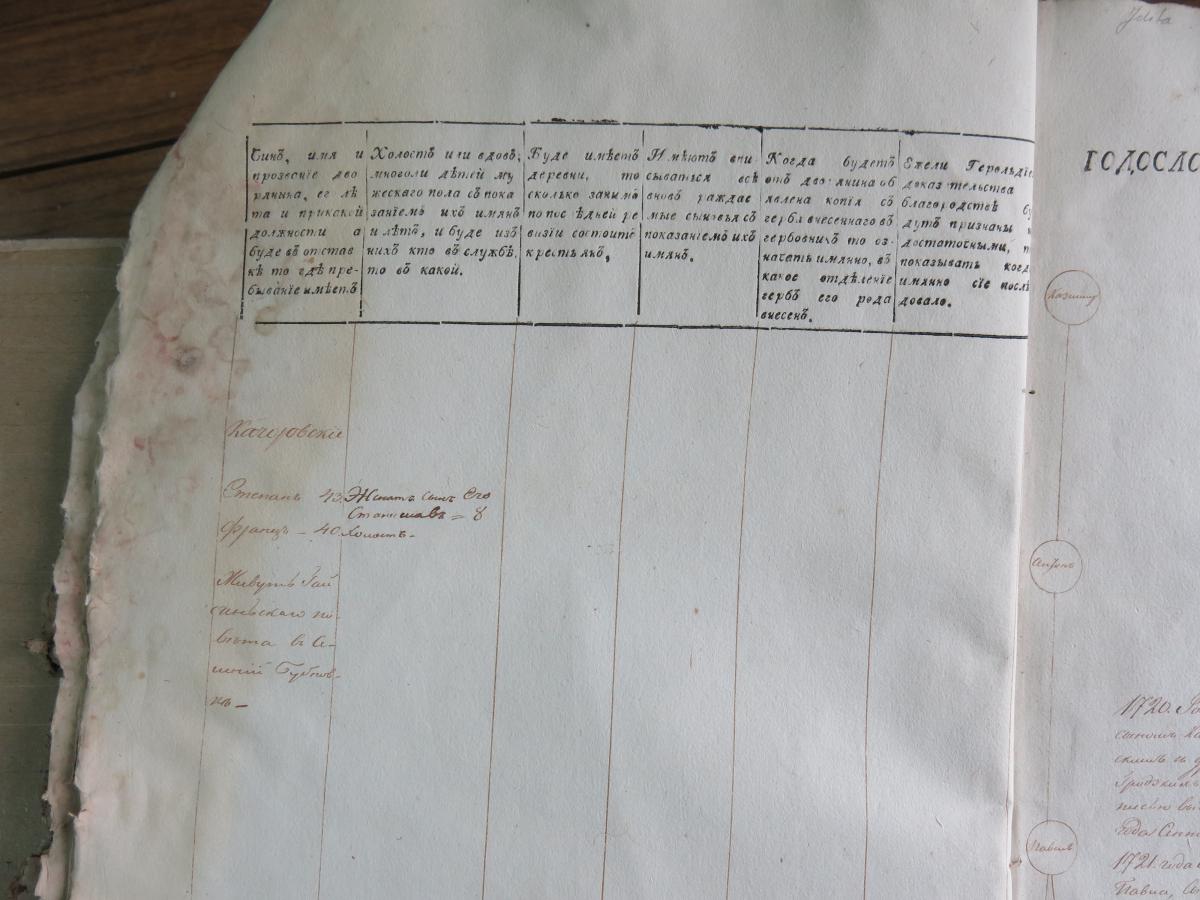 Чинъ, имя и
прозвеніе дво
рянина, ег лѣ
та и прикской
должности а
буде въ отстав
кѣ то гдѣ пре-
бываніе имѣетъ
Холостъ или вдовъ,
многоли дѣтей му
жескаго пола съ пока
заніемъ ихъ имянъ
и лѣтъ, и буде изъ
нихъ кто въ службѣ,
то въ какой.
Буде имѣетъ
деревни, то
сколько занимъ
по пос ѣдней ре
визіи состоитъ
крестьянъ,
Имѣютъ впи
сываться всѣ
вновъ раждае
мые сыновья съ
показаніемъ ихъ
имянъ.
Когда будетъ
отъ дворянина об
явлена копія съ
герба внесеннаго въ
гербовникъ то оз-
начать имянно, въ
какое отдѣленіе
гербъ его рода
внесенъ.
Ежели Герольдіе
доказательства
благородствѣ бу
дутъ признаны
достаточными, т
показывать когд
имянно сіе послѣ
довало.
Качоровскіе
Степанъ 43. Женатъ сынъ Его
Станиславъ = 8
Францъ - 40 Холостъ -
Живутъ Гай
синьскаго по-
вѣта въ
Губнов-
кѣ -
РОДОСЛО
Казимир
Антонъ
Павелъ
1720.
сыномъ
1721. года
Павла,